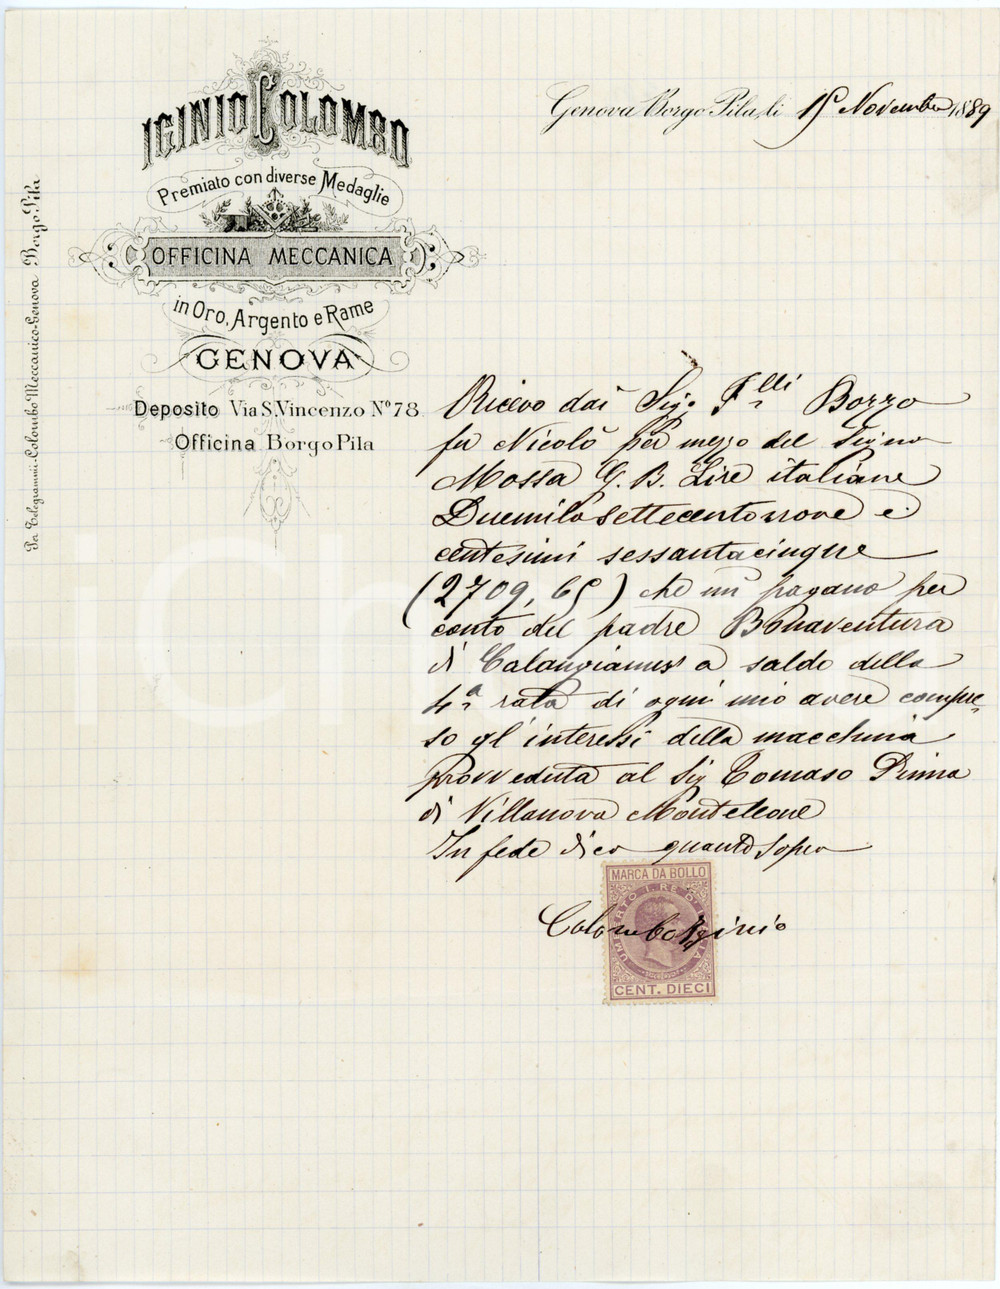 IGINIO COLOMBO
Premiato con diverse Medaglie
OFFICINA MECCANICA
in Oro, Argento e Rame
GENOVA
Deposito Via S. Vincenzo Nº 78
Officina Borgo Pila
Per Telegrammi-Colombo Meccanico-Genova Borgo-Pila
Genova Borgo Pila, li 15 Novembre 1889
Ricevo dai Sig. F.lli Bozzo
fu Nicolò per mezzo del Signor
Mossa G. B. Lire italiane
Duemila settecentonove e
centesimi sessantacinque
(2709,65) che mi pagano per
conto del padre Bonaventura
di Calangianus a saldo della
4ª rata di ogni mio avere compre-
so gl'interessi della macchina
provveduta al Sig Tomaso Pinna
di Villanova Monteleone
In fede dico quanto sopra
Colombo Iginio
MARCA DA BOLLO
UMBERTO I. RE D'ITALIA
CENT. DIECI